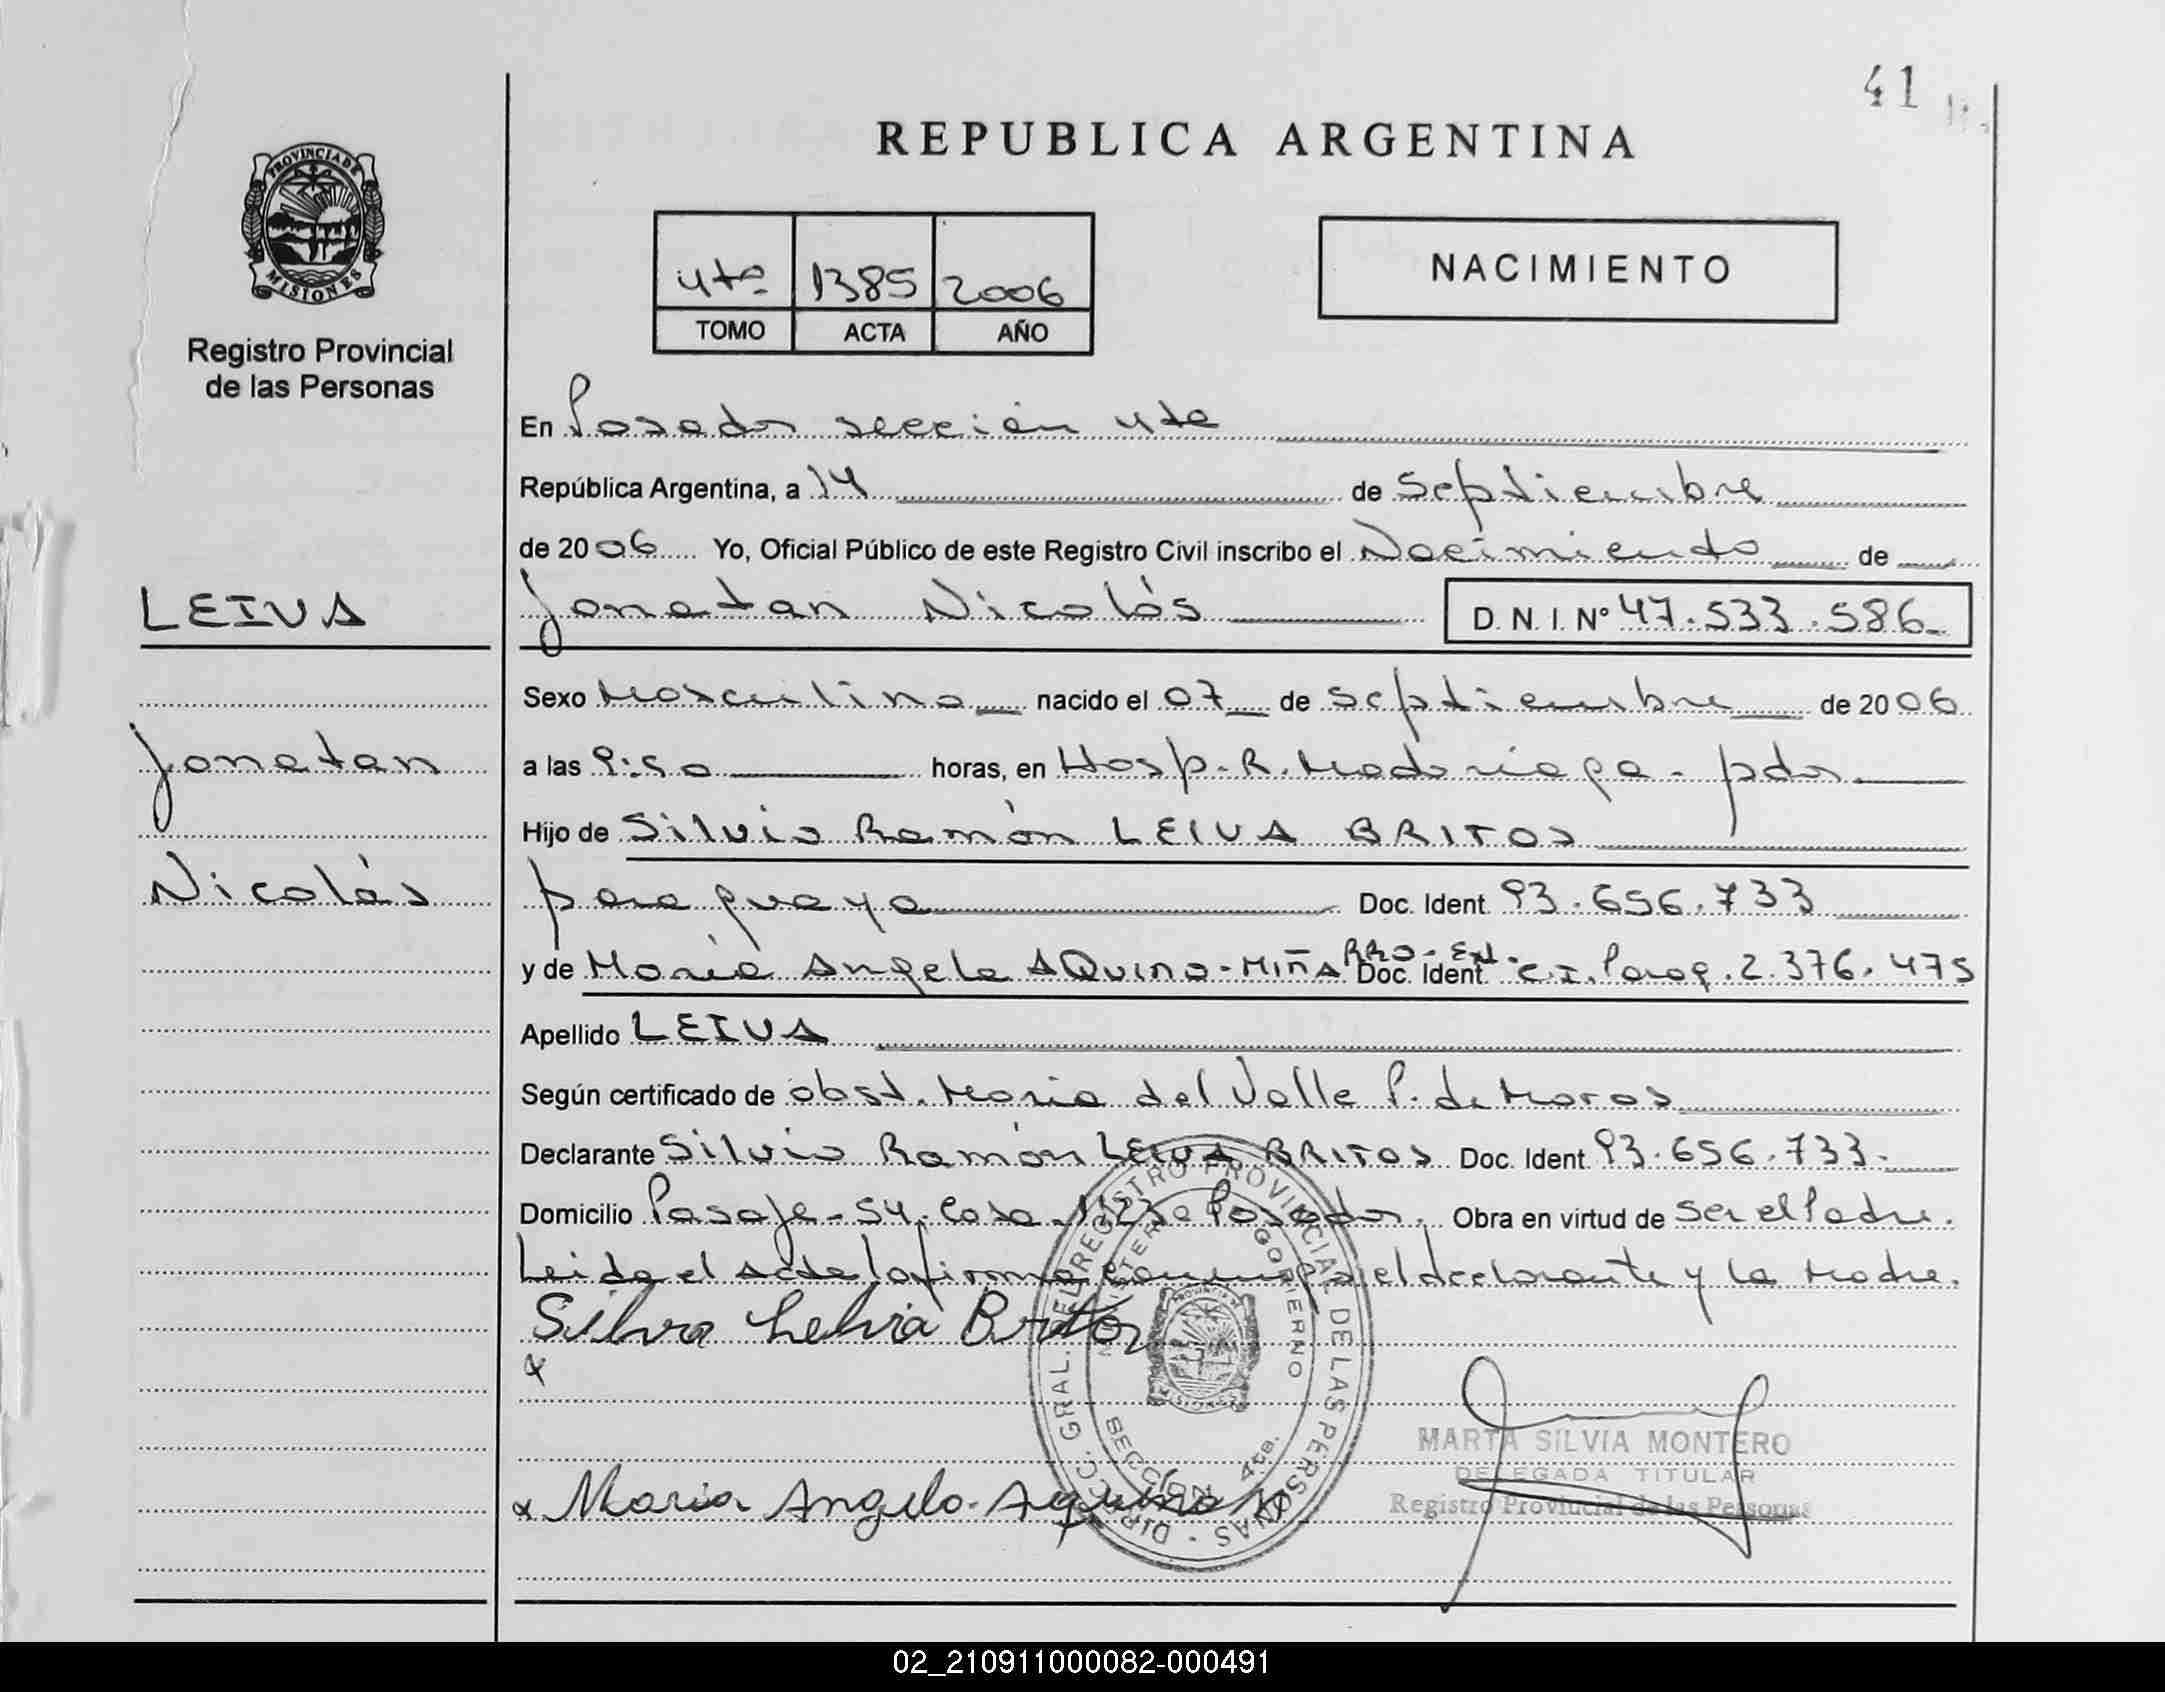 41
REPUBLICA ARGENTINA
PROVINCIA DE
MISIONES
Registro Provincial
de las Personas
4to 1385 2006
TOMO ACTA AÑO
NACIMIENTO
En Posadas sección 4ta
República Argentina, a 14 de Septiembre
de 2006 Yo, Oficial Público de este Registro Civil inscribo el Nacimiento de
LEIVA
Jonatan Nicolás D. N. I. Nº 47.533.586
Sexo Masculino nacido el 07 de Septiembre de 2006
Jonatan
a las 9:50 horas, en Hosp. R. Madariaga - pdas.
Hijo de Silvio Ramón LEIVA BRITOS
Nicolás
paraguaya Doc. Ident. 93.656.733
y de María Angela AQUINO - MIÑA Doc. Ident. C.I. Parag. 2.376.475
Apellido LEIVA
Según certificado de obst. María del Valle P. de Moras
Declarante Silvio Ramón LEIVA BRITOS Doc. Ident. 93.656.733.
Domicilio Pasaje - 54 - Casa - 1123 - Posadas. Obra en virtud de ser el Padre.
Leida el acta la firma conmigo el declarante y la Madre.
Silvio Leiva Britos
x
x Maria Angela Aquino M
DIRECC. GRAL. EL REGISTRO PROVINCIAL DE LAS PERSONAS
MINISTERIO DE GOBIERNO
SECCION 4ta.
MARTA SILVIA MONTERO
DELEGADA TITULAR
Registro Provincial de las Personas
02_210911000082-000491